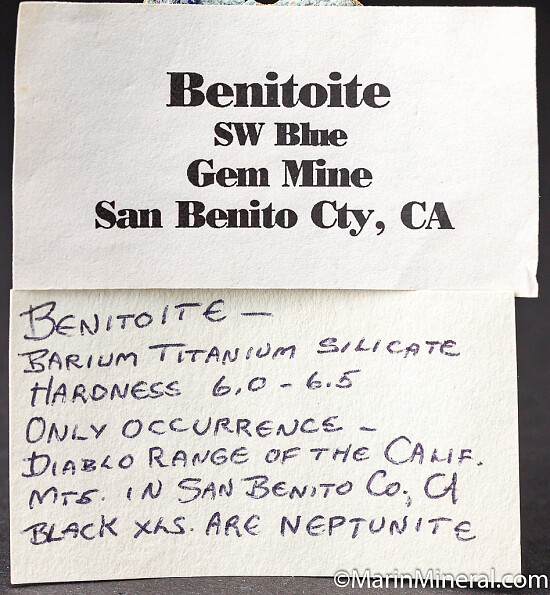 Benitoite
SW Blue
Gem Mine
San Benito Cty, CA
BENITOITE —
BARIUM TITANIUM SILICATE
HARDNESS 6.0 - 6.5
ONLY OCCURRENCE -
DIABLO RANGE OF THE CALIF.
MTS. IN SAN BENITO CO., CA
BLACK XLS. ARE NEPTUNITE
©MarinMineral.com